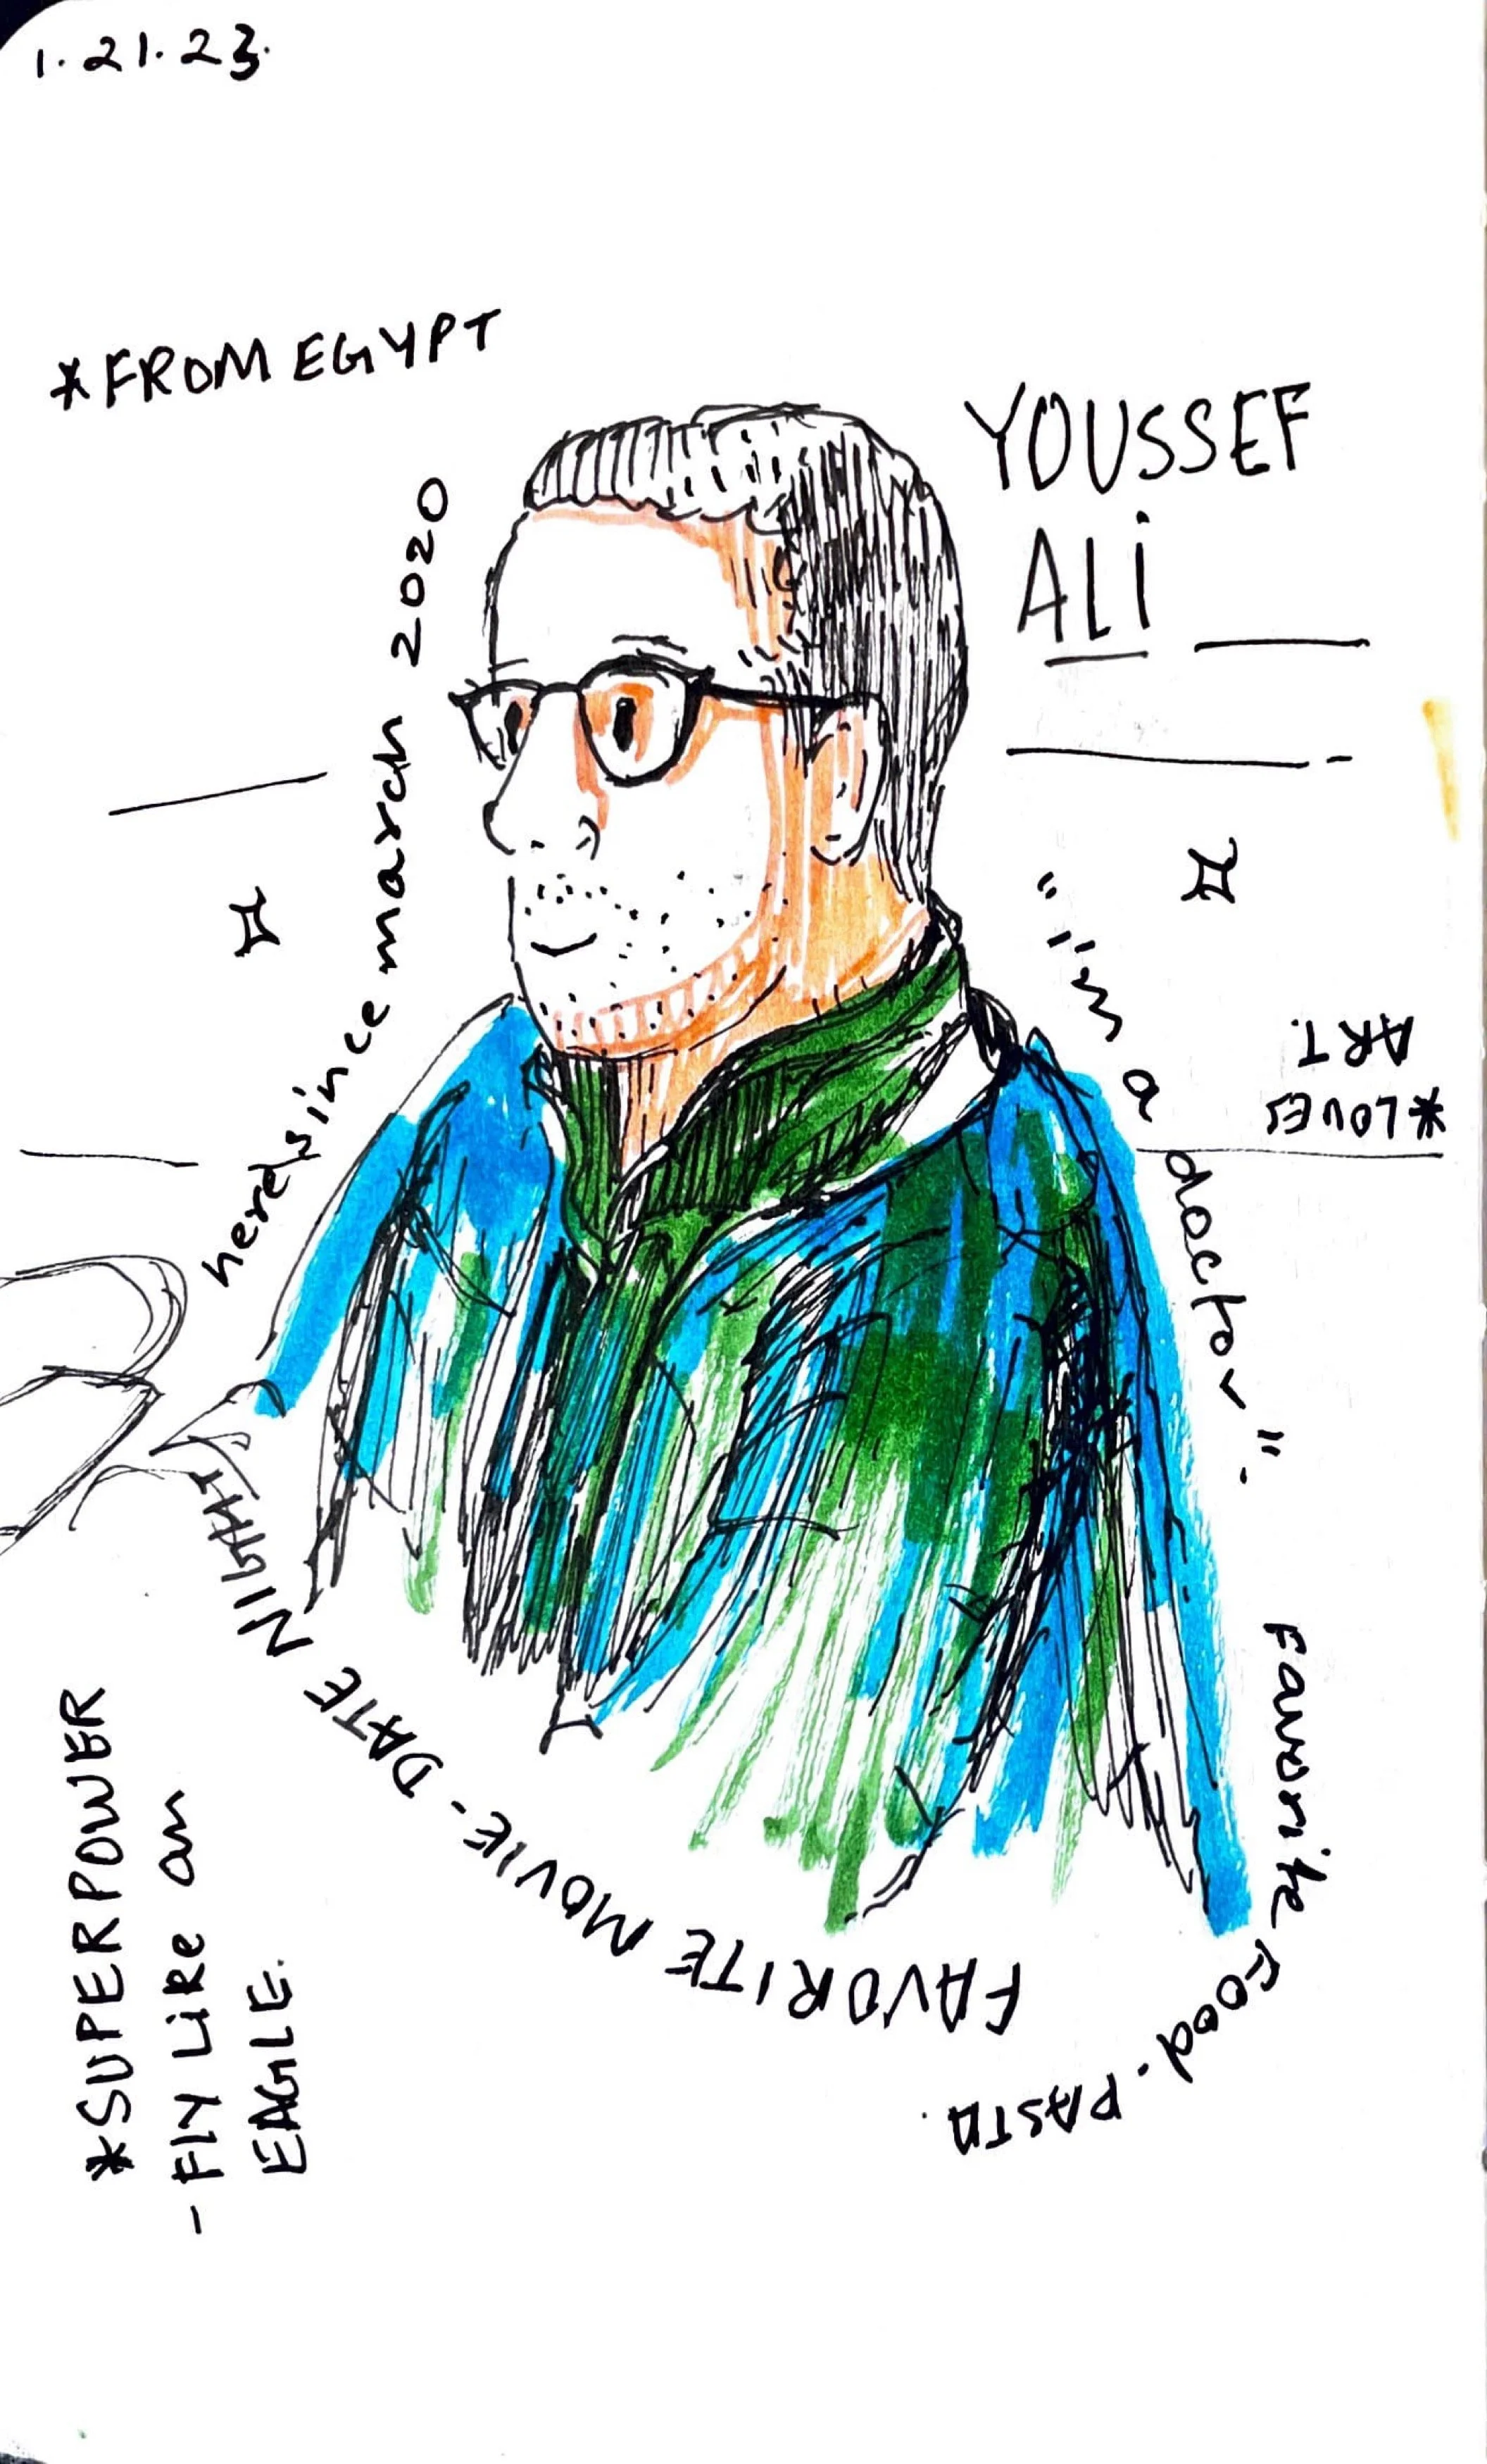 1.21.23.
*FROM EGYPT
YOUSSEF
ALi
here since march 2020
"i'm a doctor".
*LOVES
ART.
Favorite Food. PASTA.
FAVORITE MOVIE - DATE NIGHT
*SUPERPOWER
- FLY LiKe an
EAGLE.